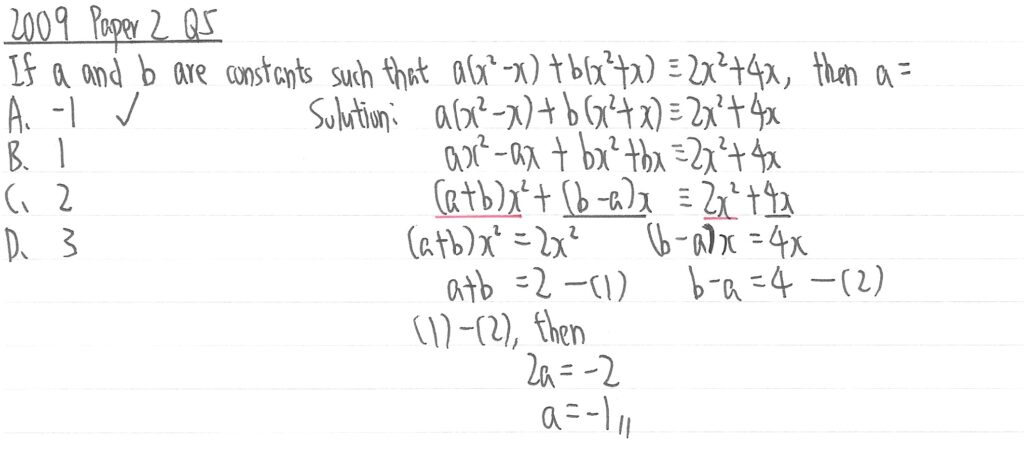 2009 Paper 2 Q5
If a and b are constants such that a(x²-x)+b(x²+x)≡2x²+4x, then a=
A. -1 ✓
B. 1
C. 2
D. 3
Solution: a(x²-x)+b(x²+x)≡2x²+4x
ax²-ax+bx²+bx≡2x²+4x
(a+b)x²+(b-a)x ≡2x²+4x
(a+b)x²=2x² (b-a)x=4x
a+b=2 —(1) b-a=4 —(2)
(1)-(2), then
2a=-2
a=-1//